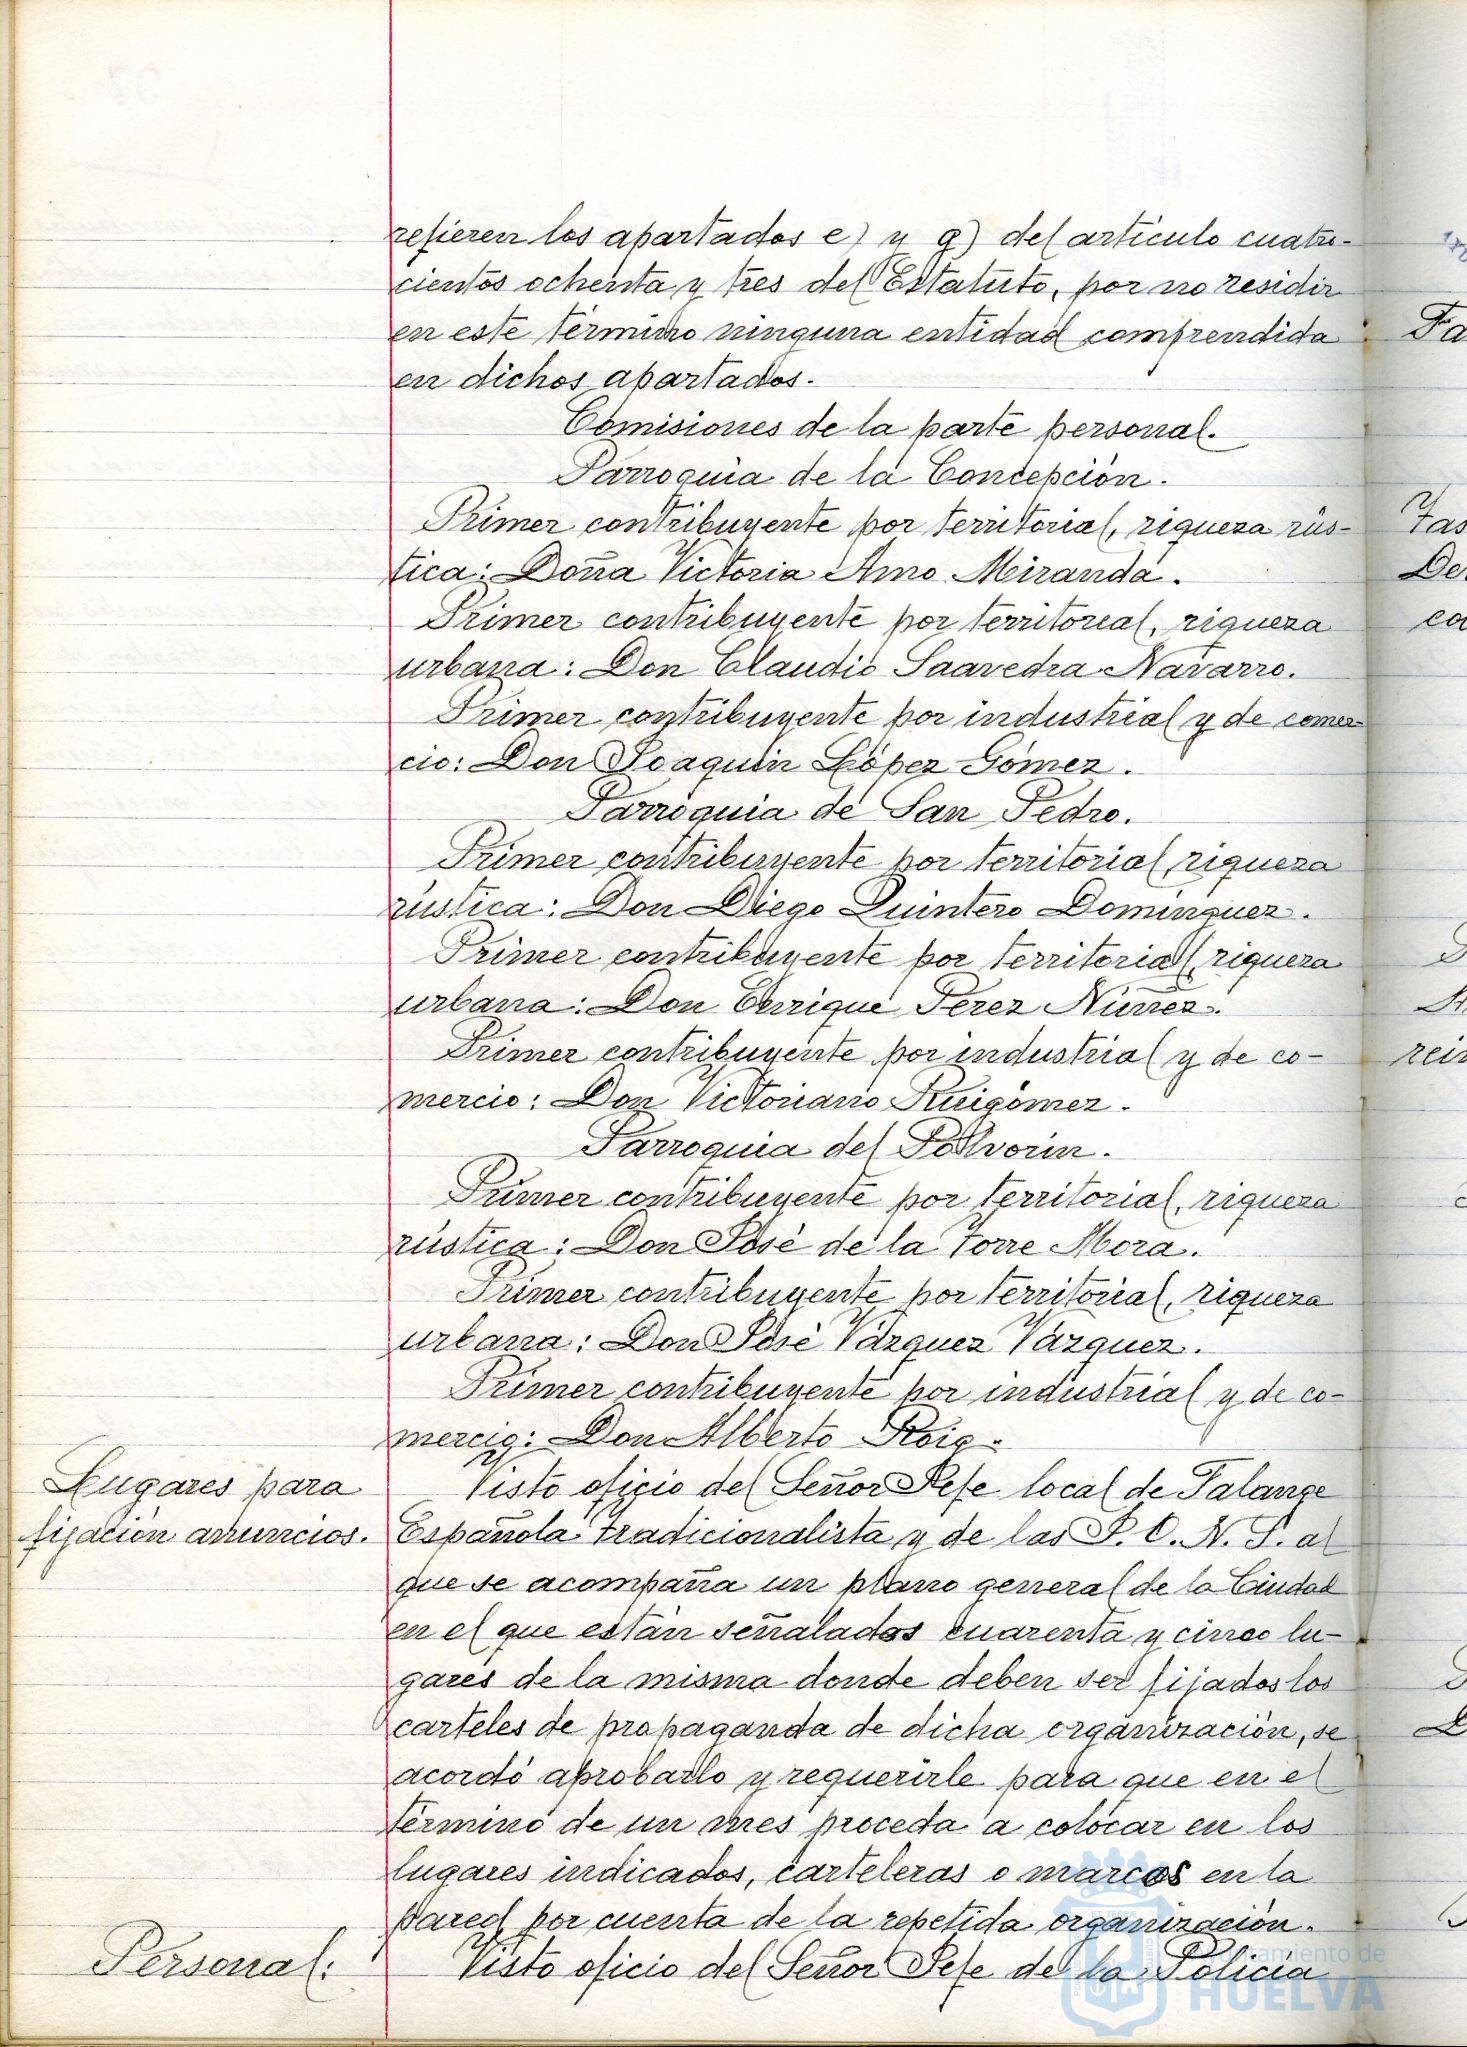 refieren los apartados e) y g) del artículo cuatro-
cientos ochenta y tres del Estatuto, por no residir
en este término ninguna entidad comprendida
en dichos apartados.
Comisiones de la parte personal.
Parroquia de la Concepción.
Primer contribuyente por territorial, riqueza rús-
tica: Doña Victoria Amo Miranda.
Primer contribuyente por territoreal, riqueza
urbana: Don Claudio Saavedra Navarro.
Primer contribuyente por industrial y de comer-
cio: Don Joaquín López Gómez.
Parroquia de San Pedro.
Primer contribuyente por territorial, riqueza
rústica: Don Diego Quintero Domínguez.
Primer contribuyente por territorial, riqueza
urbana: Don Enrique Perez Núñez.
Primer contribuyente por industrial y de co-
mercio: Don Victoriano Ruigómez.
Parroquia del Polvorín.
Primer contribuyente por territorial, riqueza
rústica: Don José de la Torre Mora.
Primer contribuyente por territorial, riqueza
urbana: Don José Vázquez Vázquez.
Primer contribuyente por industrial y de co-
mercio: Don Alberto Roig.
Lugares para
fijación anuncios.
Visto oficio del Señor Jefe local de Falange
Española Tradicionalista y de las J. O. N. S. al
que se acompaña un plano general de la Ciudad
en el que están señalados cuarenta y cinco lu-
gares de la misma donde deben ser fijados los
carteles de propaganda de dicha organización, se
acordó aprobarlo y requerirle para que en el
término de un mes proceda a colocar en los
lugares indicados, carteleras o marcos en la
pared por cuenta de la repetida organización.
Personal:
Visto oficio del Señor Jefe de la Policía
Ayuntamiento de
HUELVA
Fa
Tas
De
ca
rein